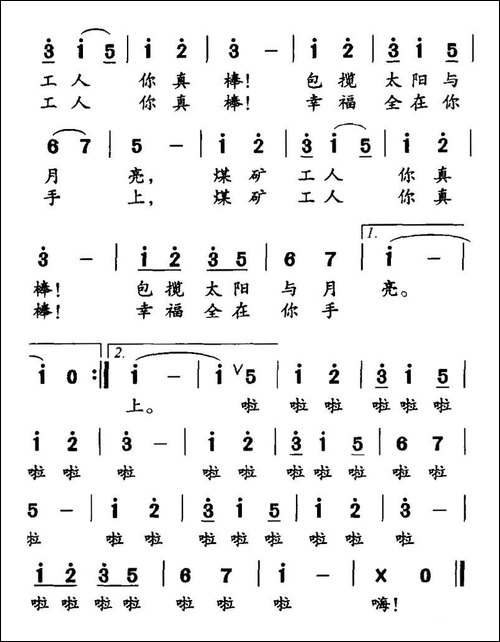 3 1 5 | 1 2 | 3 - | 1 2 | 3 1 5 |
工人 你真 棒! 包揽 太阳与
工人 你真 棒! 幸福 全在你
6 7 | 5 - | 1 2 | 3 1 5 | 1 2 |
月 亮, 煤矿 工人 你真
手 上, 煤矿 工人 你真
1.
3 - | 1 2 3 5 | 6 7 | 1 - |
棒! 包揽太阳 与月 亮。
棒! 幸福全在 你手
2.
1 0 :| 1 - | 1 V 5 | 1 2 | 3 1 5 |
上。 啦 啦啦 啦啦啦
1 2 | 3 - | 1 2 | 3 1 5 | 6 7 |
啦啦 啦 啦啦 啦啦啦 啦啦
5 - | 1 2 | 3 1 5 | 1 2 | 3 - |
啦 啦啦 啦啦啦 啦啦 啦
1 2 3 5 | 6 7 | 1 - | X 0 ||
啦啦啦啦 啦啦 啦 嗨!